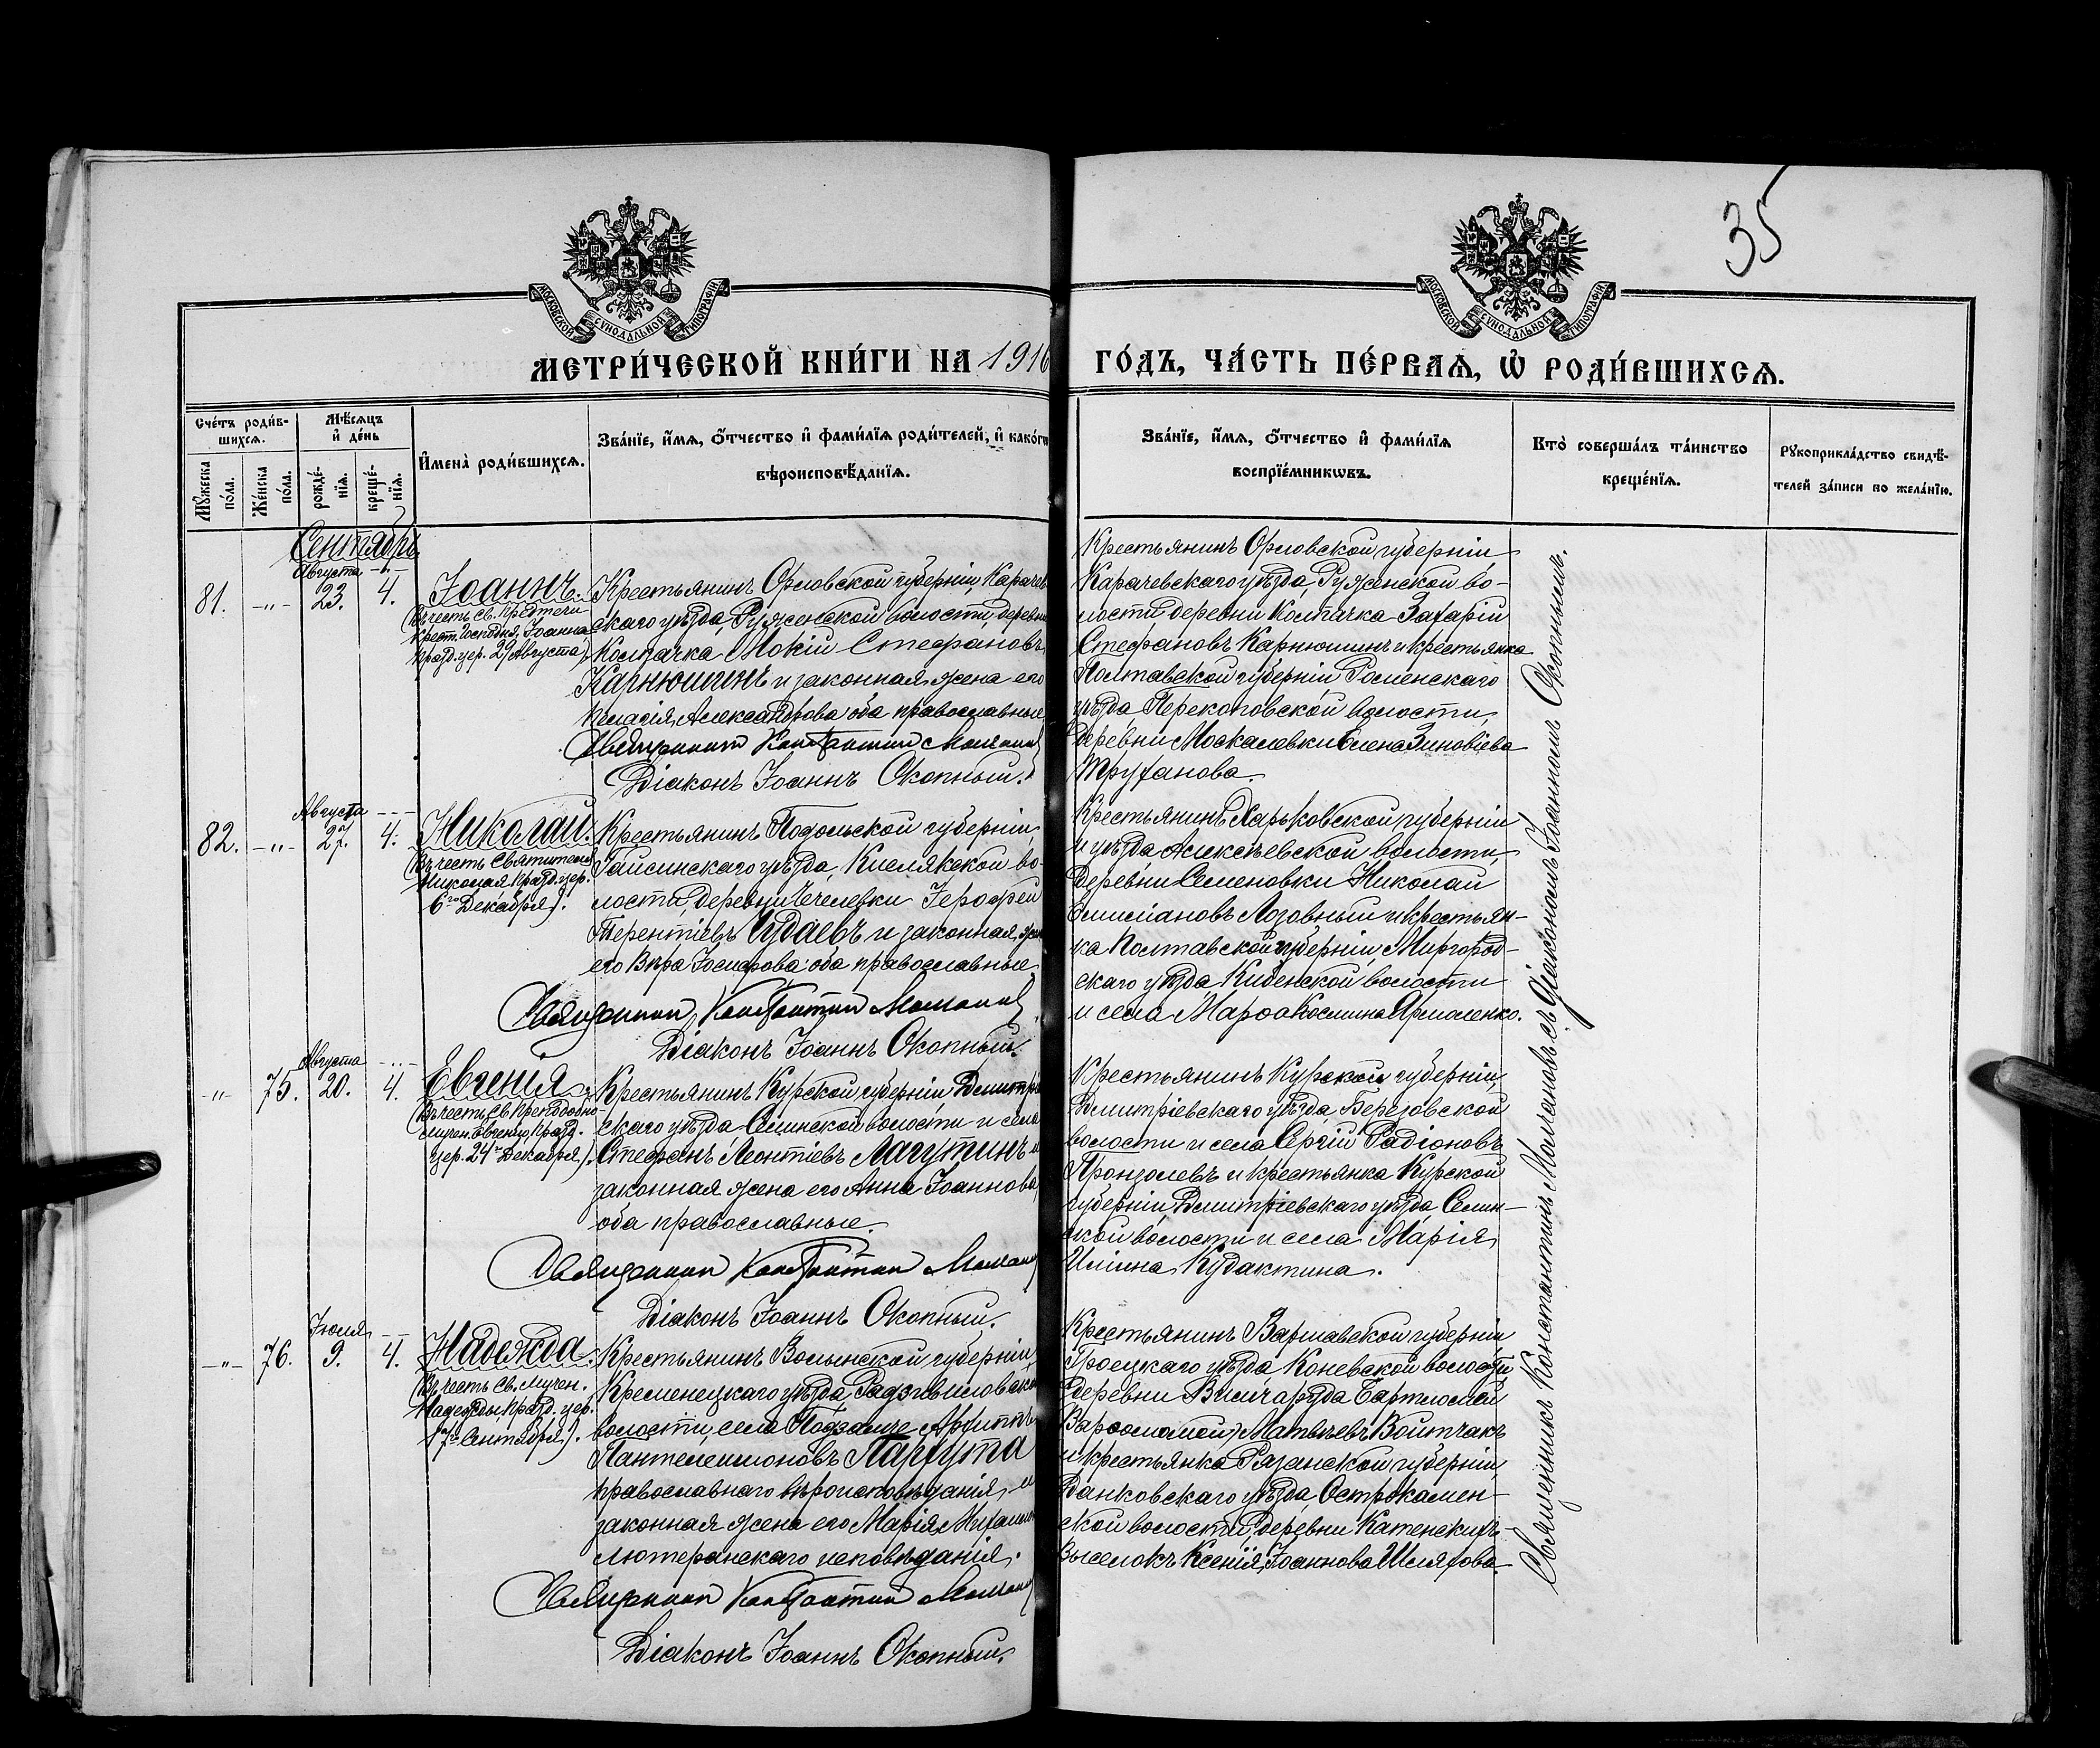 35
МОСКОВСКОЙ СѴНОДАЛЬНОЙ ТИПОГРАФІИ
МОСКОВСКОЙ СѴНОДАЛЬНОЙ ТИПОГРАФІИ
МЕТРИ́ЧЕСКОЙ КНИ́ГИ НА 1916
ГО́ДЪ, ЧА́СТЬ ПЕ́РВАѦ, Ѡ РОДИ́ВШИХСѦ.
Сче́тъ роди́в-
шихсѧ.
Мѣ́сѧцъ
и҆ де́нь
Мꙋ́жеска
по́ла.
Же́нска
по́ла.
рожде́-
нїѧ.
креще́-
нїѧ.
И҆мена̀ роди́вшихсѧ.
Зва́нїе, и҆́мѧ, о҆́тчество и҆ фами́лїѧ роди́телей, и҆ како́гѡ
вѣроисповѣ́данїѧ.
Зва́нїе, и҆́мѧ, о҆́тчество и҆ фами́лїѧ
воспрїе́мникѡвъ.
Кто̀ соверша́лъ та́инство
креще́нїѧ.
Рꙋкоприкла́дство свидѣ́-
телей за́писи по жела́нїю.
Сентябрь
81. -"- Августа 23. 4.
Іоаннъ.
(Въ честь Св. Предтечи
Крест. Господня, Іоанна
празд. цер. 29 Августа).
Крестьянинъ Орловской губерніи, Карачев
скаго уѣзда, Руженской волости, деревни
Колпачка Мокій Стефановъ
Карнюшинъ и законная жена его
Пелагія Александрова оба православные
Священникъ Константинъ Молчановъ
Діаконъ Іоаннъ Окопный.
Крестьянинъ Орловской губерніи
Карачевскаго уѣзда, Руженской во-
лости деревни Колпачка Захарій
Стефановъ Карнюшинъ и крестьянка
Полтавской губерніи Роменскаго
уѣзда Перекоповской волости,
деревни Москалевки Елена Зиновіева
Труханова.
82. -"- Августа 27. 4.
Николай.
(Въ честь Святителя
Николая празд. цер.
6го Декабря).
Крестьянинъ Подольской губерніи,
Гайсинскаго уѣзда, Кислякской во-
лости, деревни Чечелевки Іерофей
Терентіевъ Чудаевъ и законная жена
его Вѣра Іосифова оба православные
Священникъ Константинъ Молчановъ
Діаконъ Іоаннъ Окопный.
Крестьянинъ Харьковской губерніи
и уѣзда Алексѣевской волости,
деревни Семеновки Николай
Емиліановъ Лозовный и крестьян-
ка Полтавской губерніи, Миргород-
скаго уѣзда Кибенской волости
и села Марфа Космина Ярмоленко.
-"- 75. Августа 20. 4.
Евгенія.
(Въ честь Св. Преподобно-
мучен. Евгеніи, празд.
цер. 24го Декабря).
Крестьянинъ Курской губерніи, Дмитріев
скаго уѣзда Селинской волости и села
Стефанъ Леонтіевъ Лагутинъ и
законная жена его Анна Іоаннова
оба православные.
Священникъ Константинъ Молчановъ
Діаконъ Іоаннъ Окопный.
Крестьянинъ Курской губерніи,
Дмитріевскаго уѣзда Березовской
волости и села Сергій Радіоновъ
Пронзолевъ и крестьянка Курской
губерніи, Дмитріевскаго уѣзда Селин-
ской волости и села Марія
Ильина Кудактина.
-"- 76. Іюля 9. 4.
Надежда.
(Въ честь Св. Мучен.
Надежды празд. цер.
17го Сентября).
Крестьянинъ Волынской губерніи
Кременецкаго уѣзда Радзивиловской
волости, села Подзамче
Пантелеимоновъ Пархута
православнаго вѣроисповѣданія, и
законная жена его Марія Михайлова
лютеранскаго исповѣданія.
Священникъ Константинъ Молчановъ
Діаконъ Іоаннъ Окопный.
Крестьянинъ Варшавской губерніи
Гроецкаго уѣзда Коневской волости
деревни Бартломей
(Варфоломей) Матвѣевъ Войтчакъ
и крестьянка Рязанской губерніи,
Данковскаго уѣзда, Острокамен-
ской волости, деревни Катенскихъ-
Выселокъ Ксенія Іоаннова Шляхова.
Священникъ Константинъ Молчановъ съ діакономъ Іоанномъ Окопнымъ.